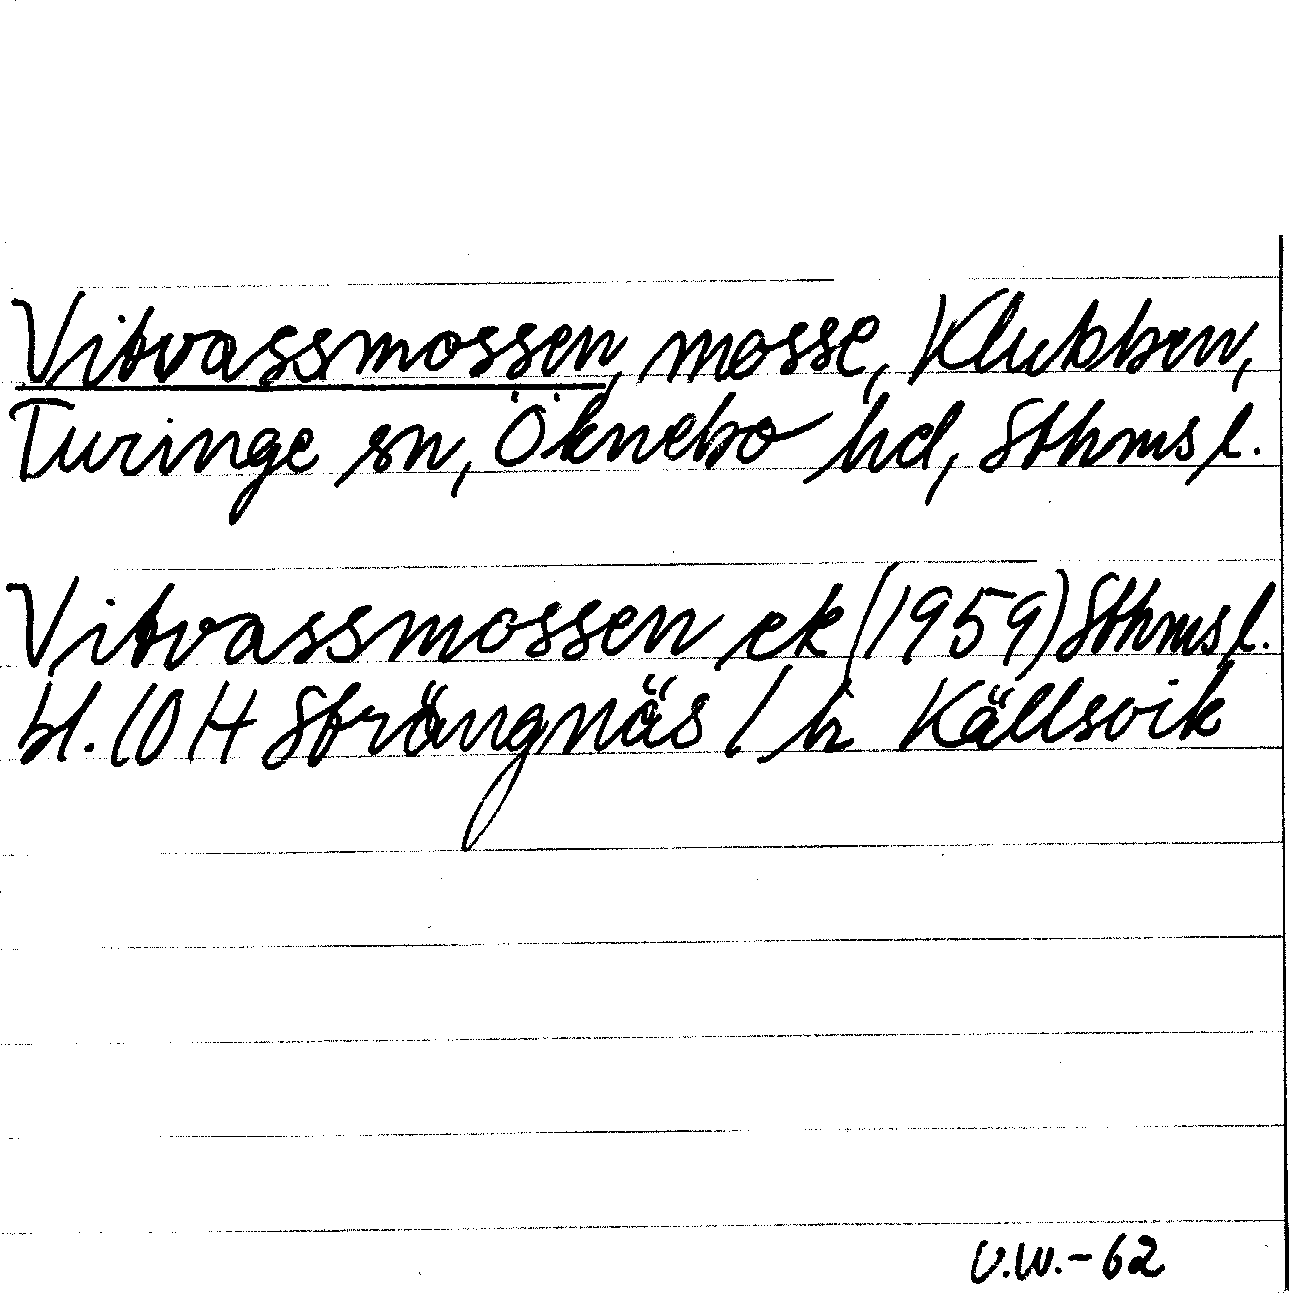 Vitvassmossen, mosse, Klubben,
Turinge sn, Öknebo hd, Sthms l.
Vitvassmossen ek (1959) Sthms l.
bl. 10 H Strängnäs / h Källsvik
V.W.-62